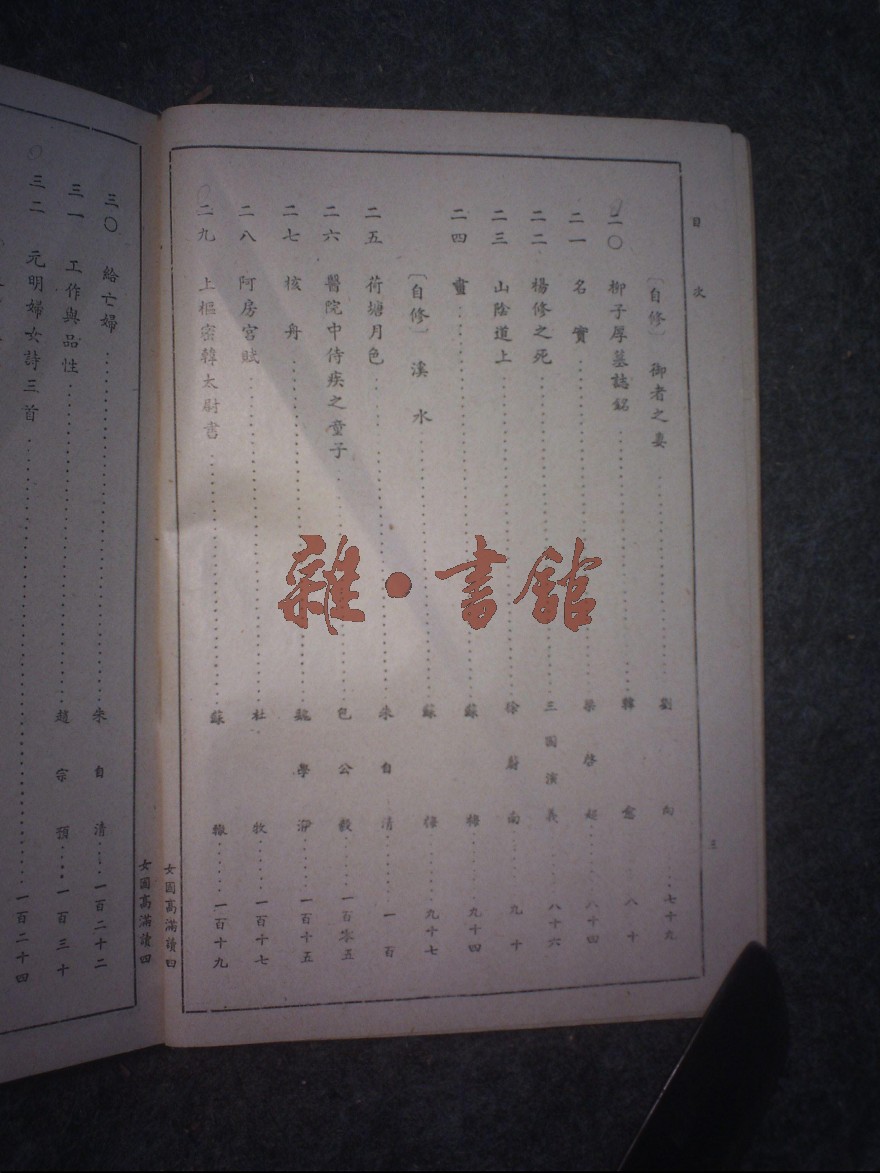 目次
〔自修〕 御者之妻 劉向 七十九
二〇 柳子厚墓誌銘 韓愈 八十
二一 名實 梁啓超 八十四
二二 楊修之死 三國演義 八十六
二三 山陰道上 徐蔚南 九十
二四 畫 蘇梅 九十四
〔自修〕 溪水 蘇梅 九十七
二五 荷塘月色 朱自清 一百
二六 醫院中侍疾之童子 包公毅 一百零五
二七 核舟 魏學洢 一百十五
二八 阿房宮賦 杜牧 一百十七
二九 上樞密韓太尉書 蘇轍 一百十九
三
女國高滿讀四
女國高滿讀四
三〇 給亡婦 朱自清 一百二十二
三一 工作與品性 趙宗預 一百三十
三二 元明婦女詩三首 一百二十四
雜·書館